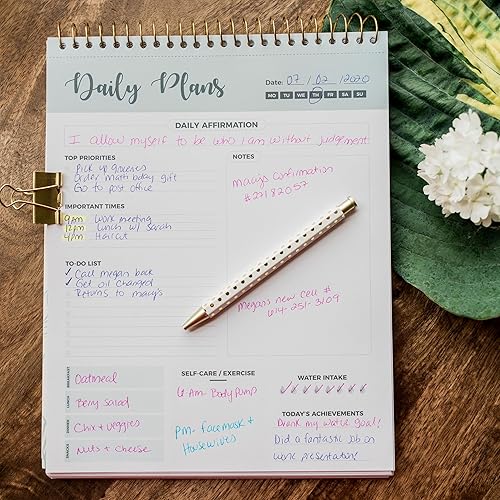 Daily Plans
Date: 07 / 02 / 2020
MO TU WE TH FR SA SU
DAILY AFFIRMATION
I allow myself to be who I am without judgement
TOP PRIORITIES
Pick up groceries
Order math baby gift
Go to post office
NOTES
Macy's confirmation
# 27182057
IMPORTANT TIMES
9am Work meeting
12pm Lunch w/ Sarah
4pm Haircut
TO-DO LIST
✓ Call megan back
✓ Get oil changed
Returns to macy's
Megan's new cell #
614-251-3109
BREAKFAST
Oatmeal
LUNCH
Berry Salad
DINNER
Chix + veggies
SNACKS
Nuts + Cheese
SELF-CARE / EXERCISE
6 Am - Body Pump
pm - facemask +
Housewives
WATER INTAKE
✓ ✓ ✓ ✓ ✓ ✓ ✓ ✓
TODAY'S ACHIEVEMENTS
Drank my water goal!
Did a fantastic job on
work presentation!